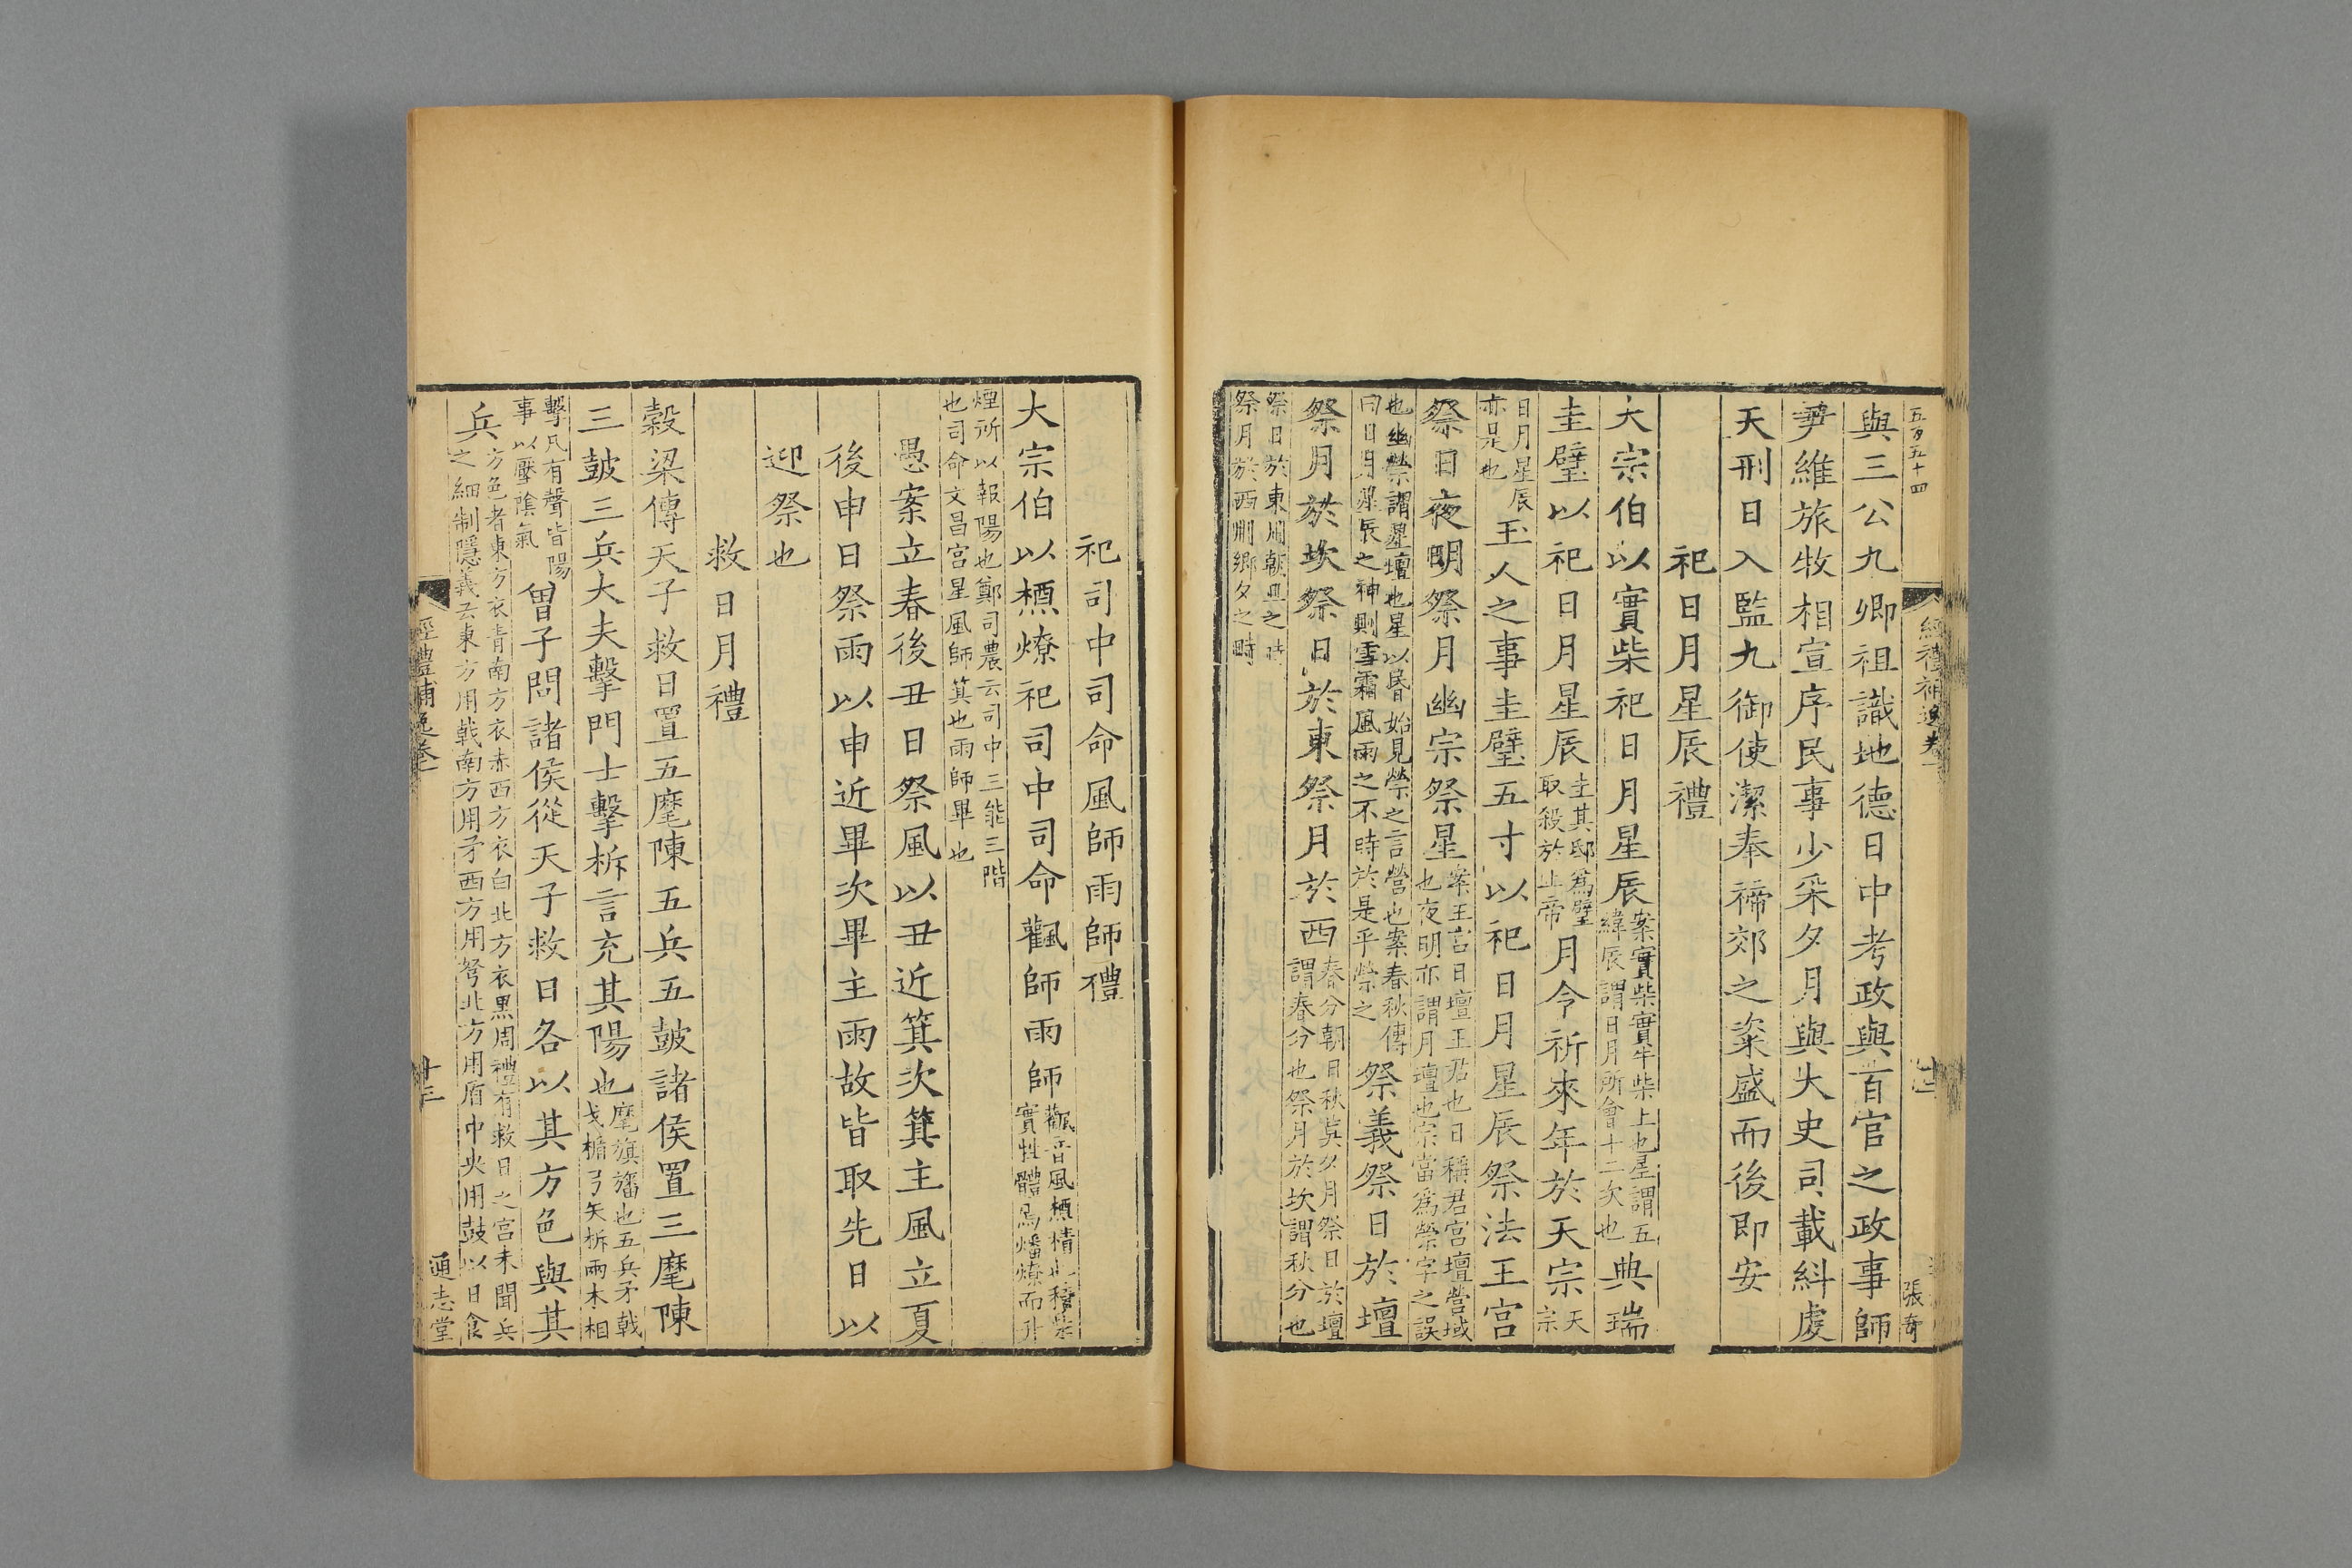 五百五十四
經禮補逸卷一
十二
張奇
與三公九卿祖識地德日中考政與百官之政事師
尹維旅牧相宣序民事少采夕月與大史司載糾虔
天刑日入監九御使潔奉禘郊之粢盛而後即安
祀日月星辰禮
大宗伯以實柴祀日月星辰案實柴實牛柴上也星謂五緯辰謂日月所會十二次也典瑞
圭璧以祀日月星辰圭其邸爲璧取殺於上帝月令祈來年於天宗天宗
日月星辰亦是也玉人之事圭璧五寸以祀日月星辰祭法王宮
祭日夜明祭月幽宗祭星案王宮日壇王君也日稱君宮壇營域也夜明亦謂月壇也宗當爲禜字之誤
也幽禜謂星壇也星以昬始見禜之言營也案春秋傳曰日月星辰之神則雪霜風雨之不時於是乎禜之祭義祭日於壇
祭月於坎祭日於東祭月於西春分朝日秋莫夕月祭日於壇謂春分也祭月於坎謂秋分也
祭日於東用朝旦之時祭月於西用鄉夕之時
祀司中司命風師雨師禮
大宗伯以槱燎祀司中司命飌師雨師飌音風槱積也積柴實牲體焉燔燎而升
煙所以報陽也鄭司農云司中三能三階也司命文昌宮星風師箕也雨師畢也
愚案立春後丑日祭風以丑近箕次箕主風立夏
後申日祭雨以申近畢次畢主雨故皆取先日以
迎祭也
救日月禮
榖梁傳天子救日置五麾陳五兵五鼓諸侯置三麾陳
三鼓三兵大夫擊門士擊柝言充其陽也麾旗旛也五兵矛戟戈楯弓矢柝兩木相
擊凡有聲皆陽事以壓陰氣曾子問諸侯從天子救日各以其方色與其
兵方色者東方衣青南方衣赤西方衣白北方衣黑周禮有救日之宮未聞兵之細制隱義云東方用戟南方用矛西方用弩北方用盾中央用鼓以日食
經禮補逸卷一
十三
通志堂